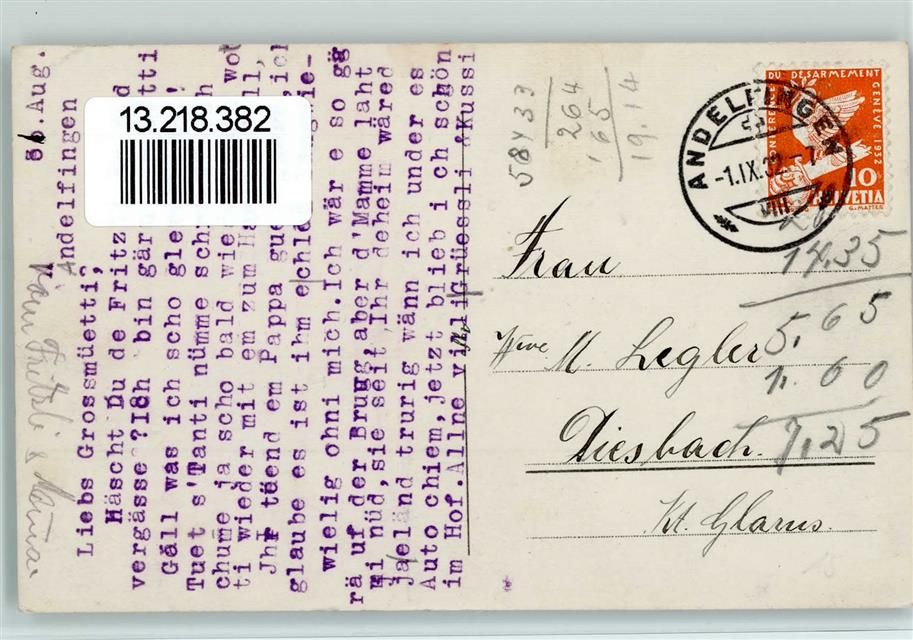 31. Aug.
Andelfingen
Liebs Grossmüetti,
Häscht Du de Fritz
vergässe?Ich bin gär
Gäll was ich scho gle
Tuet s'Tanti nümme sch
chume ja scho bald wie
ti wieder mit em zum Ha
Jhr tüend em Pappa gue
glaube es ist ihm e
wielig ohni mich.Ich wär e so gä
rä uf der Brugg aber d'Mamme laht
mi nüd,sie seit,Ihr deheim wäred
ja eländ trurig wänn ich under es
Auto chiem,jetzt blieb i ch schön
im Hof.Allne vieli Grüessli &Kussi
13.218.382
5833
264
165
19.14
ANDELFINGEN
-1.IX.32.-7
VIII
CONFERENCE DU DESARMEMENT GENÈVE 1932
10
HELVETIA
G. MATTER
Frau
Wwe M. Legler
Diesbach
Kt. Glarus.
14,35
5,65
1.60
7,25